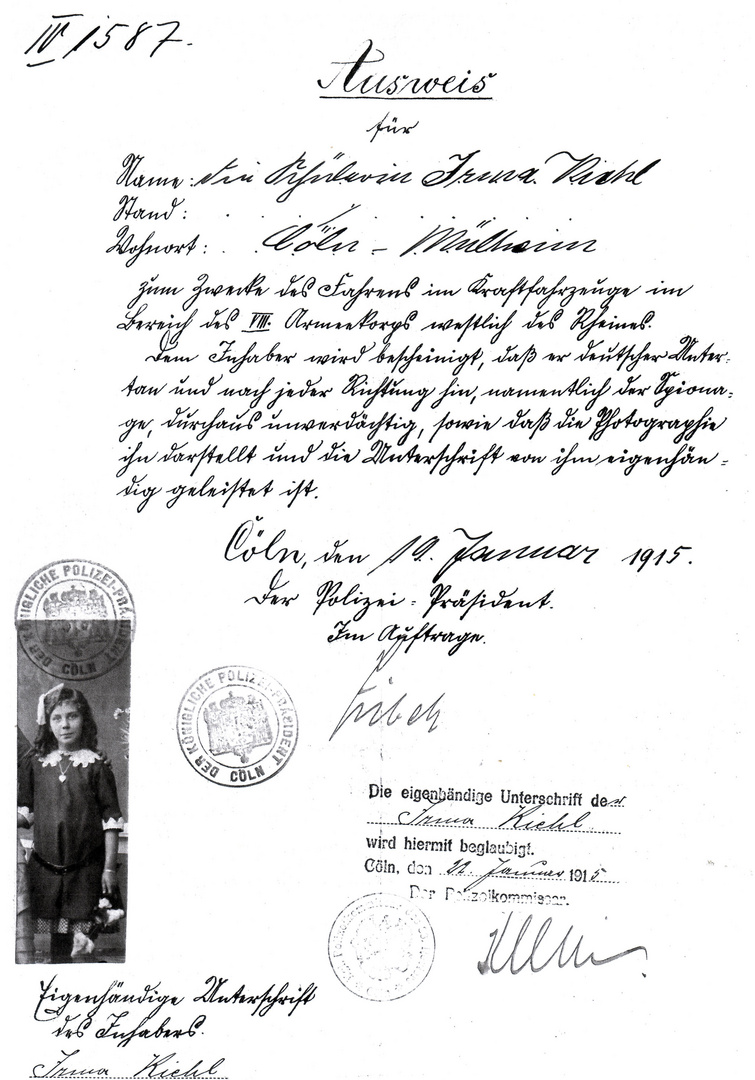 IV 1587.
Ausweis
für
Name: die Schülerin Irma Riehl
Stand:
Wohnort: Cöln - Mülheim
zum Zwecke des Fahrens im Kraftfahrzeuge im
Bereich des VIII. Armeekorps westlich des Rheines.
Dem Inhaber wird bescheinigt, daß er deutscher Unter-
tan und nach jeder Richtung hin, namentlich der Spiona-
ge, durchaus unverdächtig, sowie daß die Photographie
ihn darstellt und die Unterschrift von ihm eigenhän-
dig geleistet ist.
Cöln, den 19. Januar 1915.
Der Polizei-Präsident.
Im Auftrage.
DER KÖNIGLICHE POLIZEI-PRÄSIDENT CÖLN
DER KÖNIGLICHE POLIZEI-PRÄSIDENT CÖLN
Die eigenhändige Unterschrift der
Irma Riehl
wird hiermit beglaubigt.
Cöln, den 22. Januar 1915
Der Polizeikommissar.
Eigenhändige Unterschrift
des Inhabers.
Irma Riehl